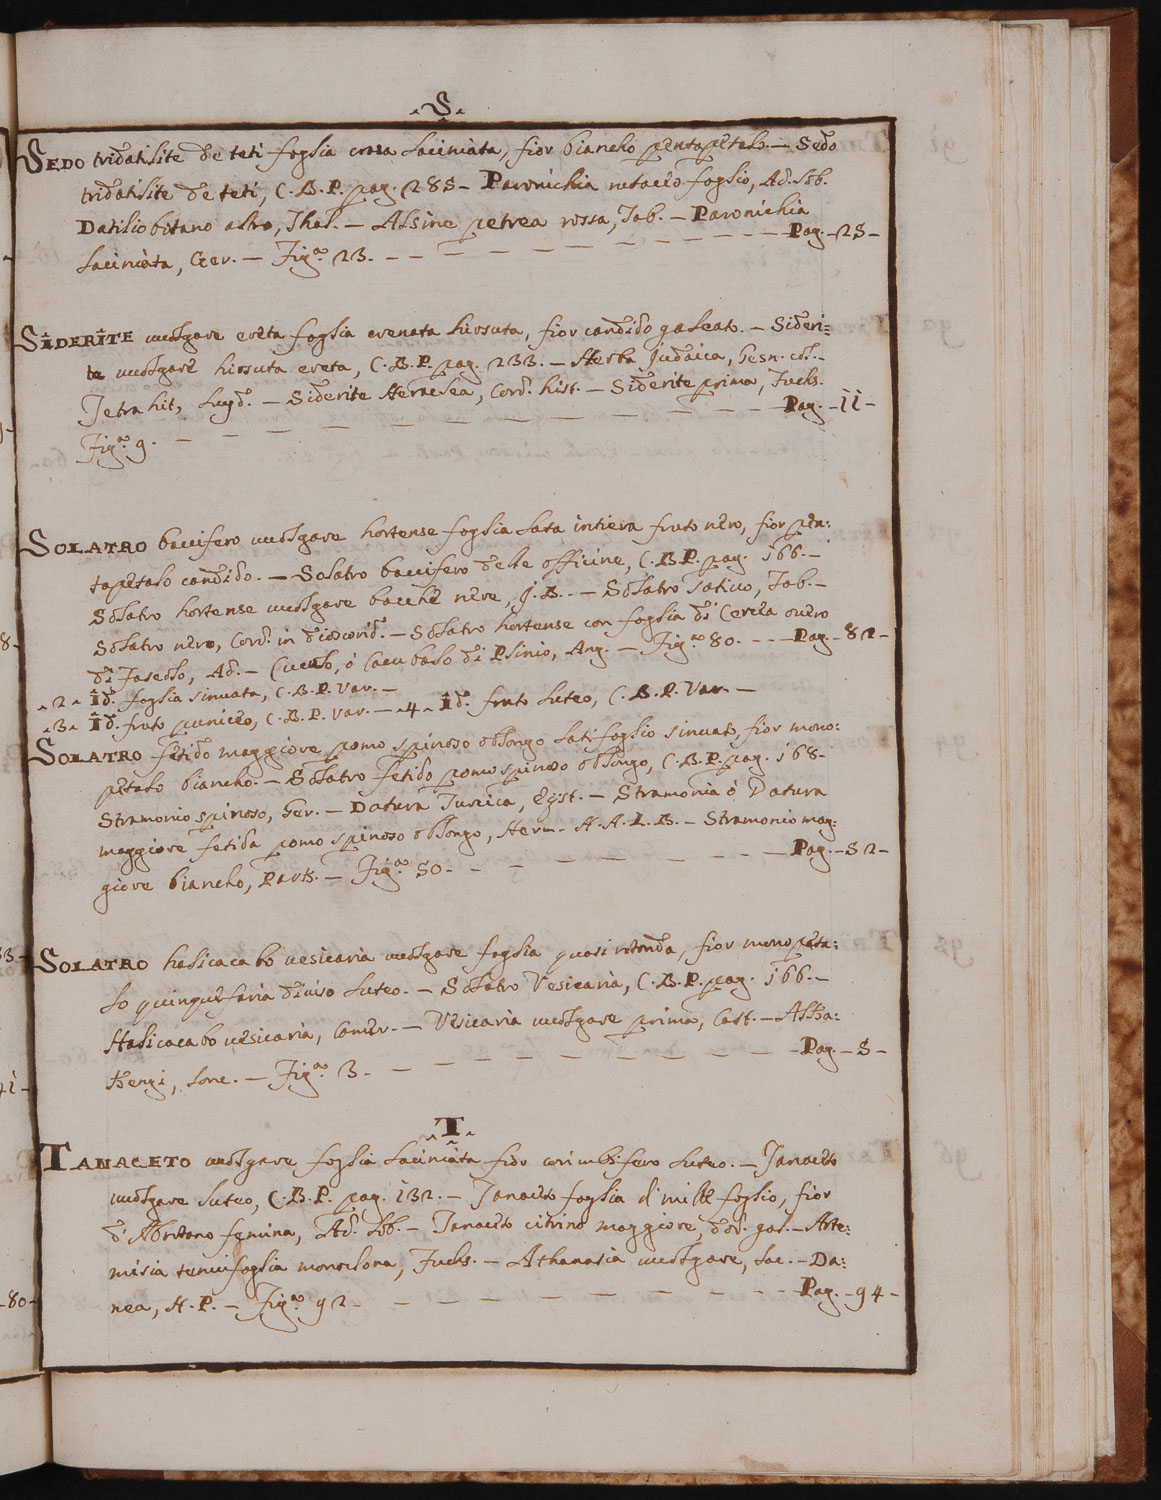 S
SEDO tridatilite de teti foglia crassa laciniata, fior biancho pentapetalo. — Sedo
tridatilite de teti, C.B.P. pag. 285 — Paronichia rutaceo foglio, Ad. Lob.
Datiliobotano altro, Thal. — Alsine petrea rossa, Tab. — Paronichia
laciniata, Ger. — Fig.ª 23. — Pag. — 25 —
SIDERITE vulgare ereta foglia crenata hirsuta, fior candido galeato. — Sideri:
te vulgare hirsuta ereta, C.B.P. pag. 233. — Herba Judaica, Gesn. col. —
Tetrahit, Lugd. — Siderite Heraclea, Cord. hist. — Siderite prima, Fuchs.
Fig.ª 9. — Pag. — 11 —
SOLATRO baccifero vulgare hortense foglia lata intiera fruto nero, fior pen:
tapetalo candido. — Solatro baccifero delle officine, C.B.P. pag. 166. —
Solatro hortense vulgare bacche nere, J.B. — Solatro sativo, Tab. —
Solatro nero, Cord. in dioscorid. — Solatro hortense con foglia di Cercea overo
di Fasedlo, Ad. — Cuculo, ò Cacubalo di Plinio, Ang. — Fig.ª 80. — Pag. — 82 —
2 Id. foglia sinuata, C.B.P. Var. —
3 Id. fruto puniceo, C.B.P. Var. — 4 Id. fruto luteo, C.B.P. Var. —
SOLATRO fetido maggiore pomo spinoso oblongo latifoglio sinuato, fior mono:
petalo biancho. — Solatro fetido pomo spinoso oblongo, C.B.P. pag. 168 —
Stramonio spinoso, Ger. — Datura Turcica, Eyst. — Stramonia ò Datura
maggiore fetida pomo spinoso oblongo, Herm. H.A.L.B. — Stramonio mag:
giore biancho, Park. — Fig.ª 50 — Pag. — 52 —
SOLATRO halicacabo vesicaria vulgare foglia quasi rotonda, fior monopeta:
lo quinquefaria diviso luteo. — Solatro Vesicaria, C.B.P. pag. 166. —
Halicacabo vesicaria, Camer. — Vesicaria vulgare prima, Cast. — Alka:
kengi, Lone. — Fig.ª 3 — Pag. — 5 —
T
TANACETO vulgare foglia laciniata fior corimbifero luteo. — Tanaceto
vulgare luteo, C.B.P. pag. 132. — Tanaceto foglia di mille foglio, fior
d'Abrotano femina, Ad. Lob. — Tanaceto citrino maggiore, dod. gal. — Arte:
misia tenuifoglia monoclona, Fuchs. — Athanasia vulgare, Lac. — Da:
nea, H.P. — Fig.ª 92 — Pag. — 94 —